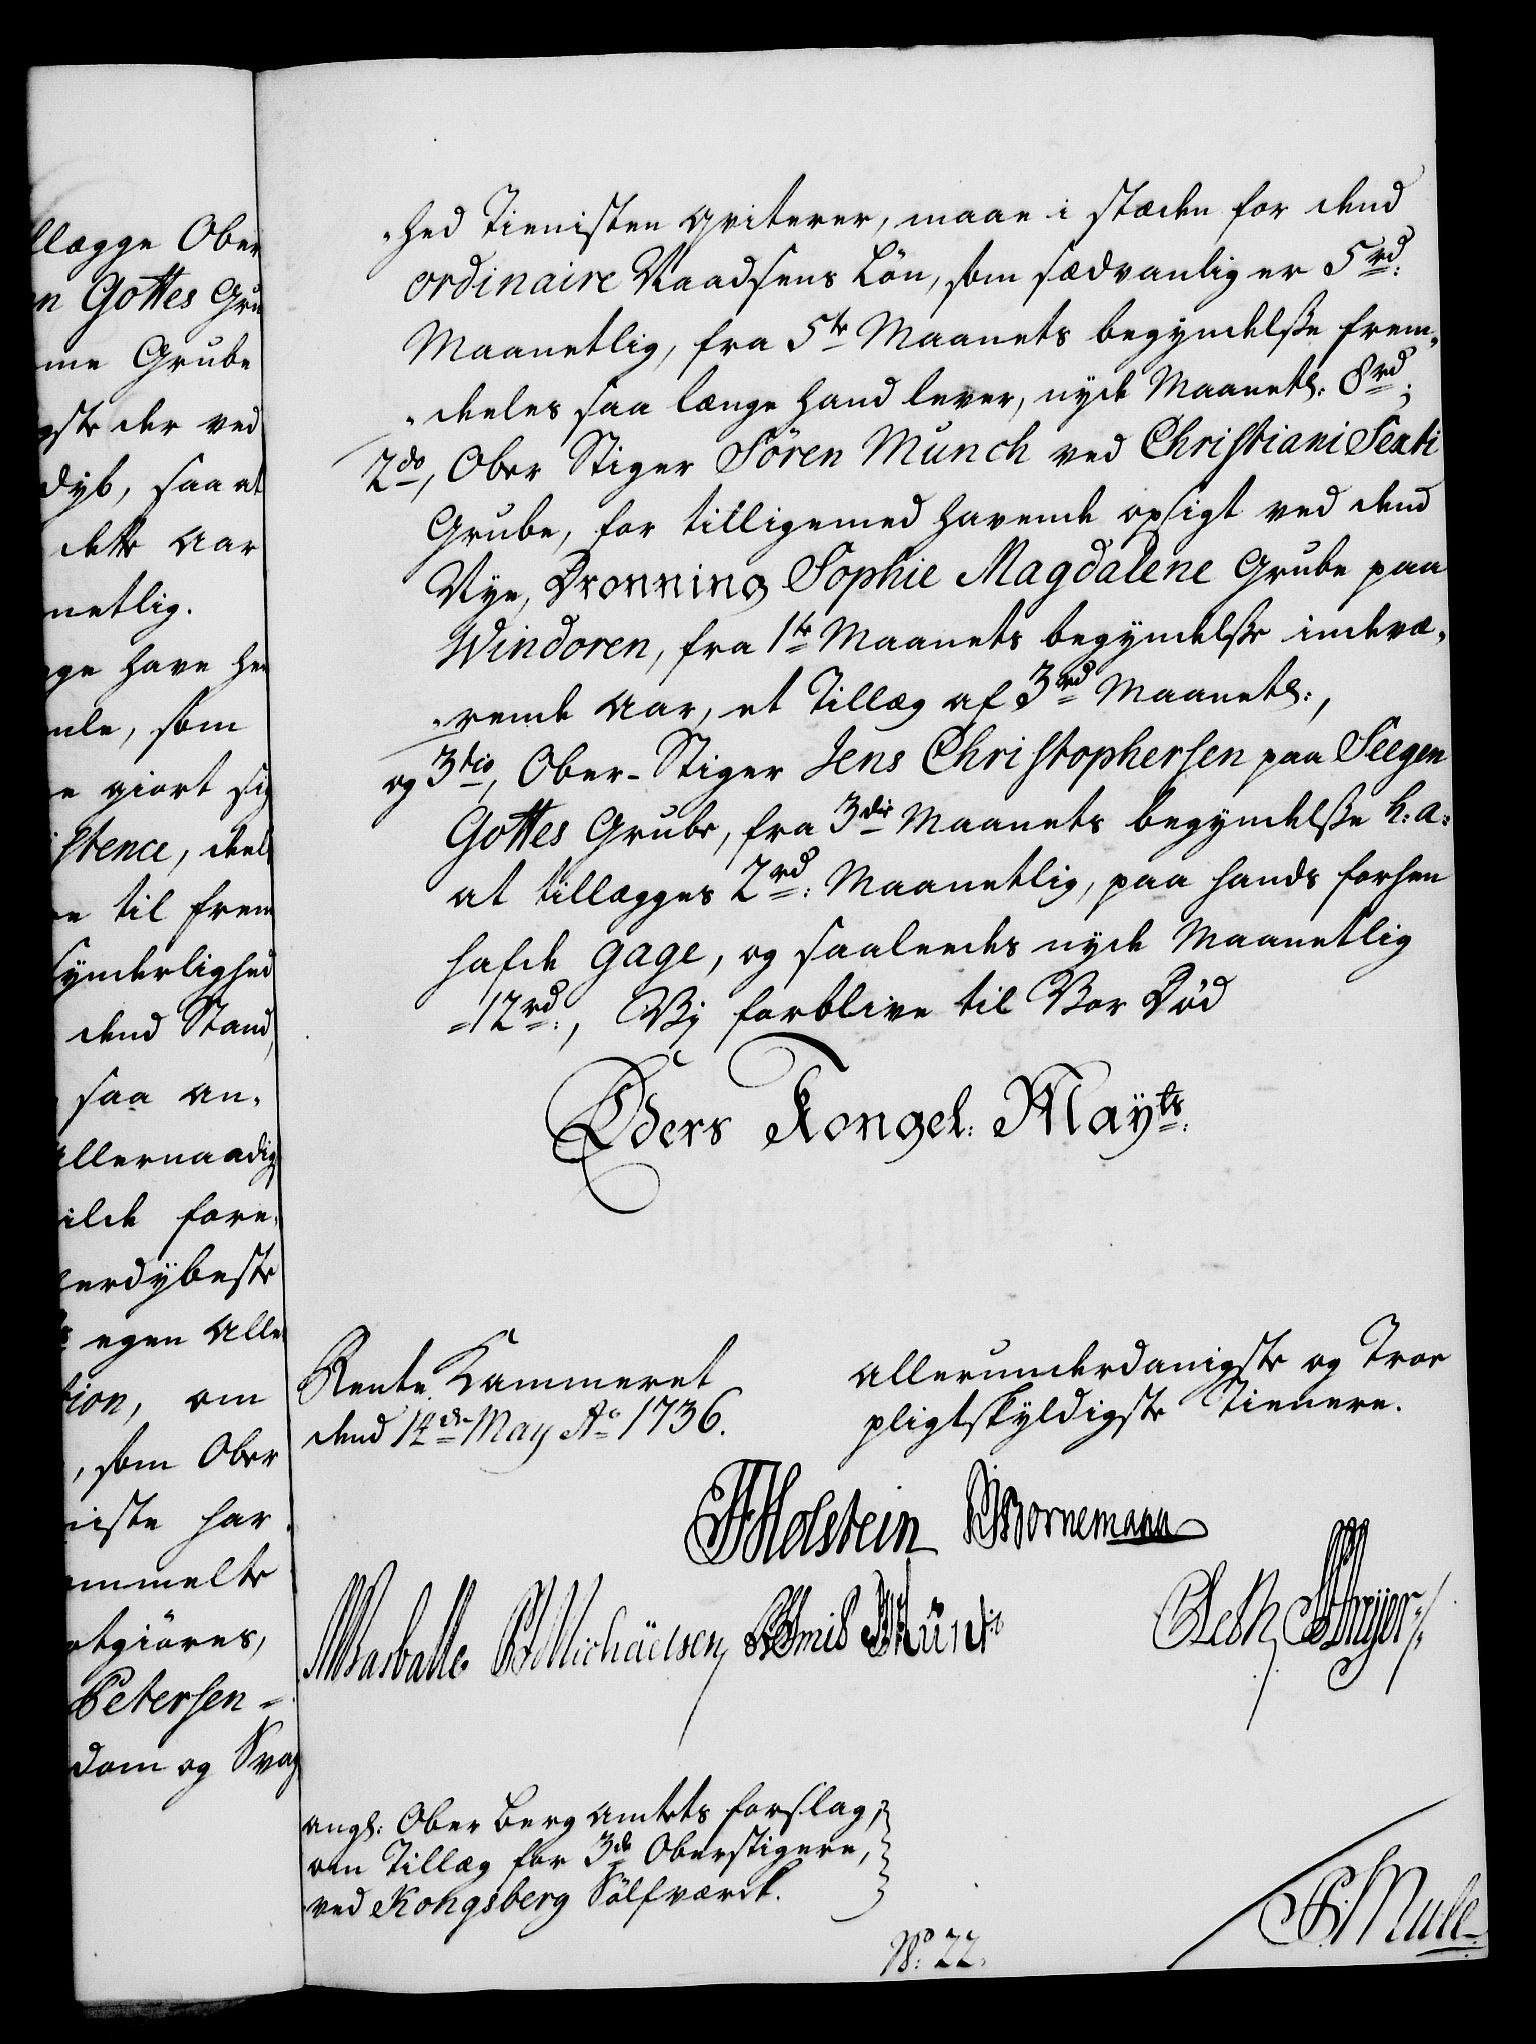 llægge Ober
n Gottes Gru
me Grube
gste der ved
dyb, saa at
dette Aar
netlig.
ge have her
nle, som
e giort sig
stence, deels
e til frem
synderlighed
dend Stand,
saa an„
allernaadig
ilde fore„
lerdybeste
egen Alle
tion, om
, som Ober
niste har
ommelte
etgiøres,
Petersen„
dom og Svag
„hed Tienisten qviterer, maae i stæden for dend
ordinaire Naadsens Løn, som sædvanlig er 5rd:
Maanetlig, fra 5te Maanets begyndelße frem„
„deeles saa længe hand lever, nyde Maanetl: 8rd;
2do, Ober Stiger Sören Munch ved Christiani Sexti
Grube, for tilligemed havende opsigt ved dend
Nye, Dronning Sophie Magdalene Grube paa
Windoren, fra 1te Maanets begyndelße indevæ„
„rende Aar, et Tillæg af 3rd Maanetl:,
og 3tio, Ober-Stiger Jens Christophersen paa Seegen
Gottes Grube, fra 3die Maanets begyndelße h: a:
at tillægges 2rd: Maanetlig, paa hands forhen
hafde gage, og saaleedes nyde Maanetlig
12rd:, Vj forblive til Vor Död
Eders Kongel: Mayts:
Rente Kammeret
dend 14de May Ao 1736.
allerunderdanigste og Troe
pligtskyldigste Tienere.
FHolstein Bornemann
Basballe Michäelsen
Meyer
angl: Ober Berg Amtets forslag,
om Tillæg for 3de Oberstigere,
ved Kongsberg Sölfværck.
No: 22.
Mule